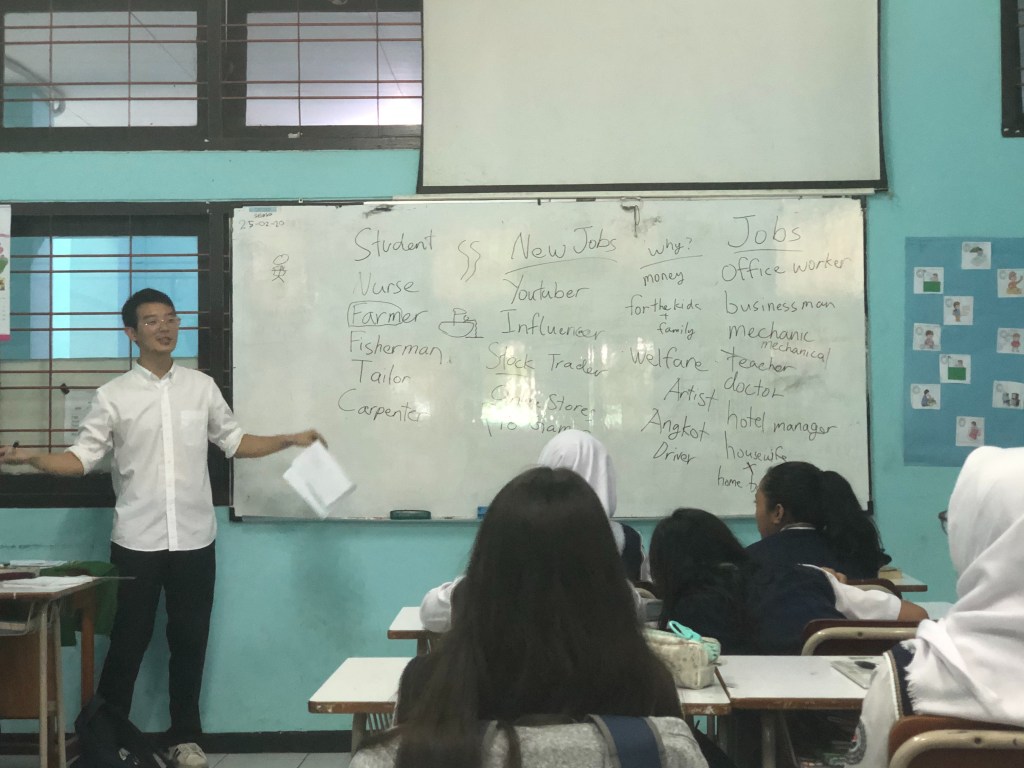 25-02-10
Student
Nurse
Farmer
Fisherman.
Tailor
Carpenter
New Jobs
Youtuber
Influencer
Stock Trader
Online Stores
why?
money
for the kids
+
family
Welfare
Artist
Angkot
Driver
Jobs
Office worker
businessman
mechanic
mechanical
teacher
doctor
hotel manager
housewife
home